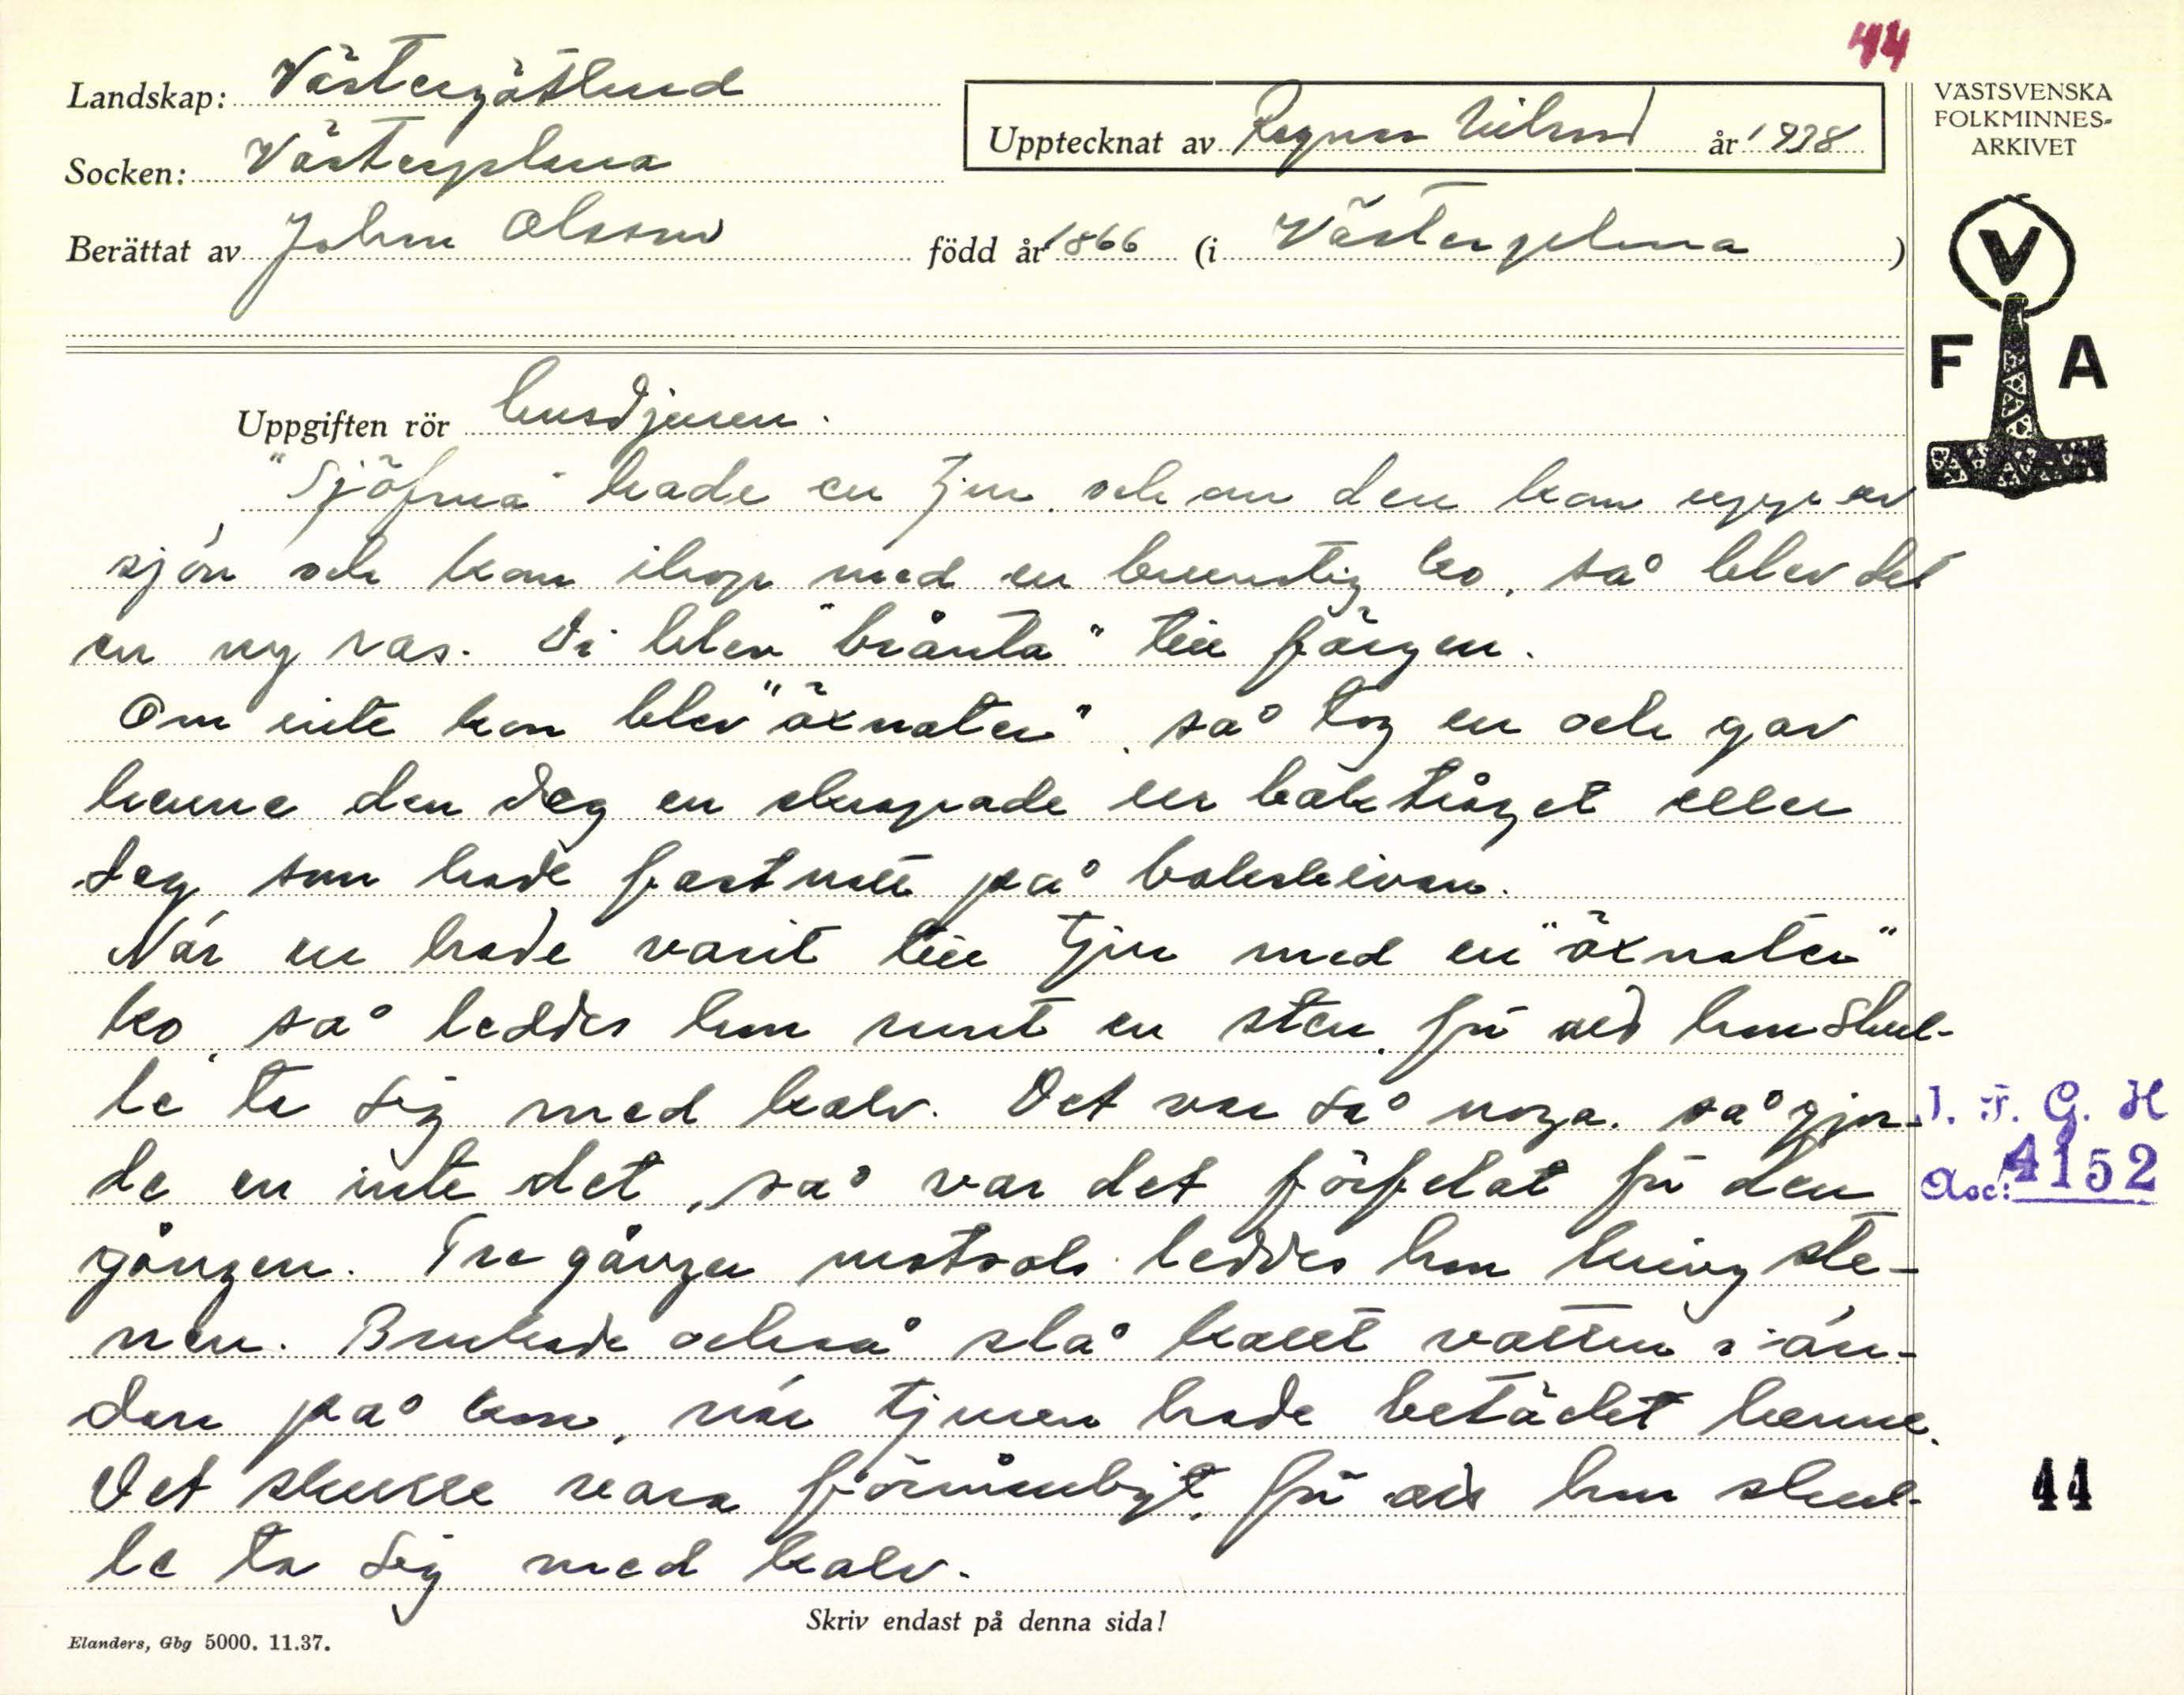 44
Landskap: Västergötland
Socken: Västerplana
Upptecknat av Ragnar Nilsson år 1938
Berättat av Johan Olsson född år 1866 (i Västerplana)
VÄSTSVENSKA
FOLKMINNES-
ARKIVET
V
F A
Uppgiften rör husdjuren.
"Sjöfrua" hade en tjur och om den kom upp av
sjön och kom ihop med en brunstig ko, så blev det
en ny ras. Di blev "brånta" till färgen.
Om inte kon blev "öxnaten", så tog en och gav
henne den deg en skrapade ur baktråget eller
deg som hade fastnat på bakskivan.
När en hade varit till tjur med en "öxnaten"
ko, så leddes hon runt en sten, för att hon skul-
le ta sig med kalv. Det var så noga, så gjor-
de en inte det, så var det förfelat för den
gången. Tre gånger motsols leddes hon kring ste-
nen. Brukade också slå kallt vatten i än-
dan på kon, när tjuren hade betäckt henne.
Det skulle vara förmånligt, för att hon skul-
le ta sig med kalv.
I. F. G. H
Acc: 4152
44
Skriv endast på denna sida!
Elanders, Gbg 5000. 11.37.